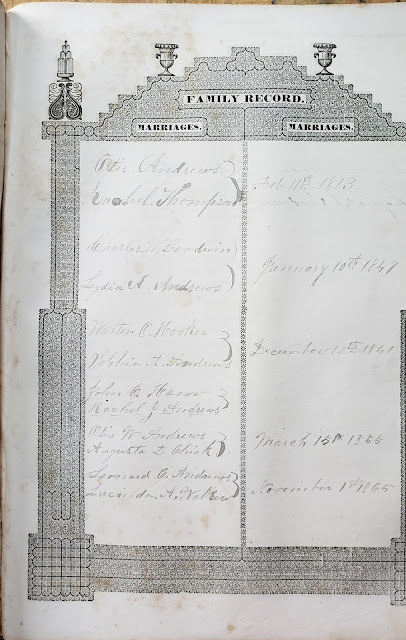 FAMILY RECORD.
MARRIAGES. MARRIAGES.
Otis Andrews
Rachel Thompson
Feb 11th 1813
Charles Goodwin
Lydia A. Andrews
January 10th 1847
O. Hooker
A. Andrews
December 12th 1841
John C.
Rachel J Andrews
Otis W Andrews
Augusta D Chick
March 15th 1855
Leonard C. Andrews
Lucinda A. Walker
November 1st 1865